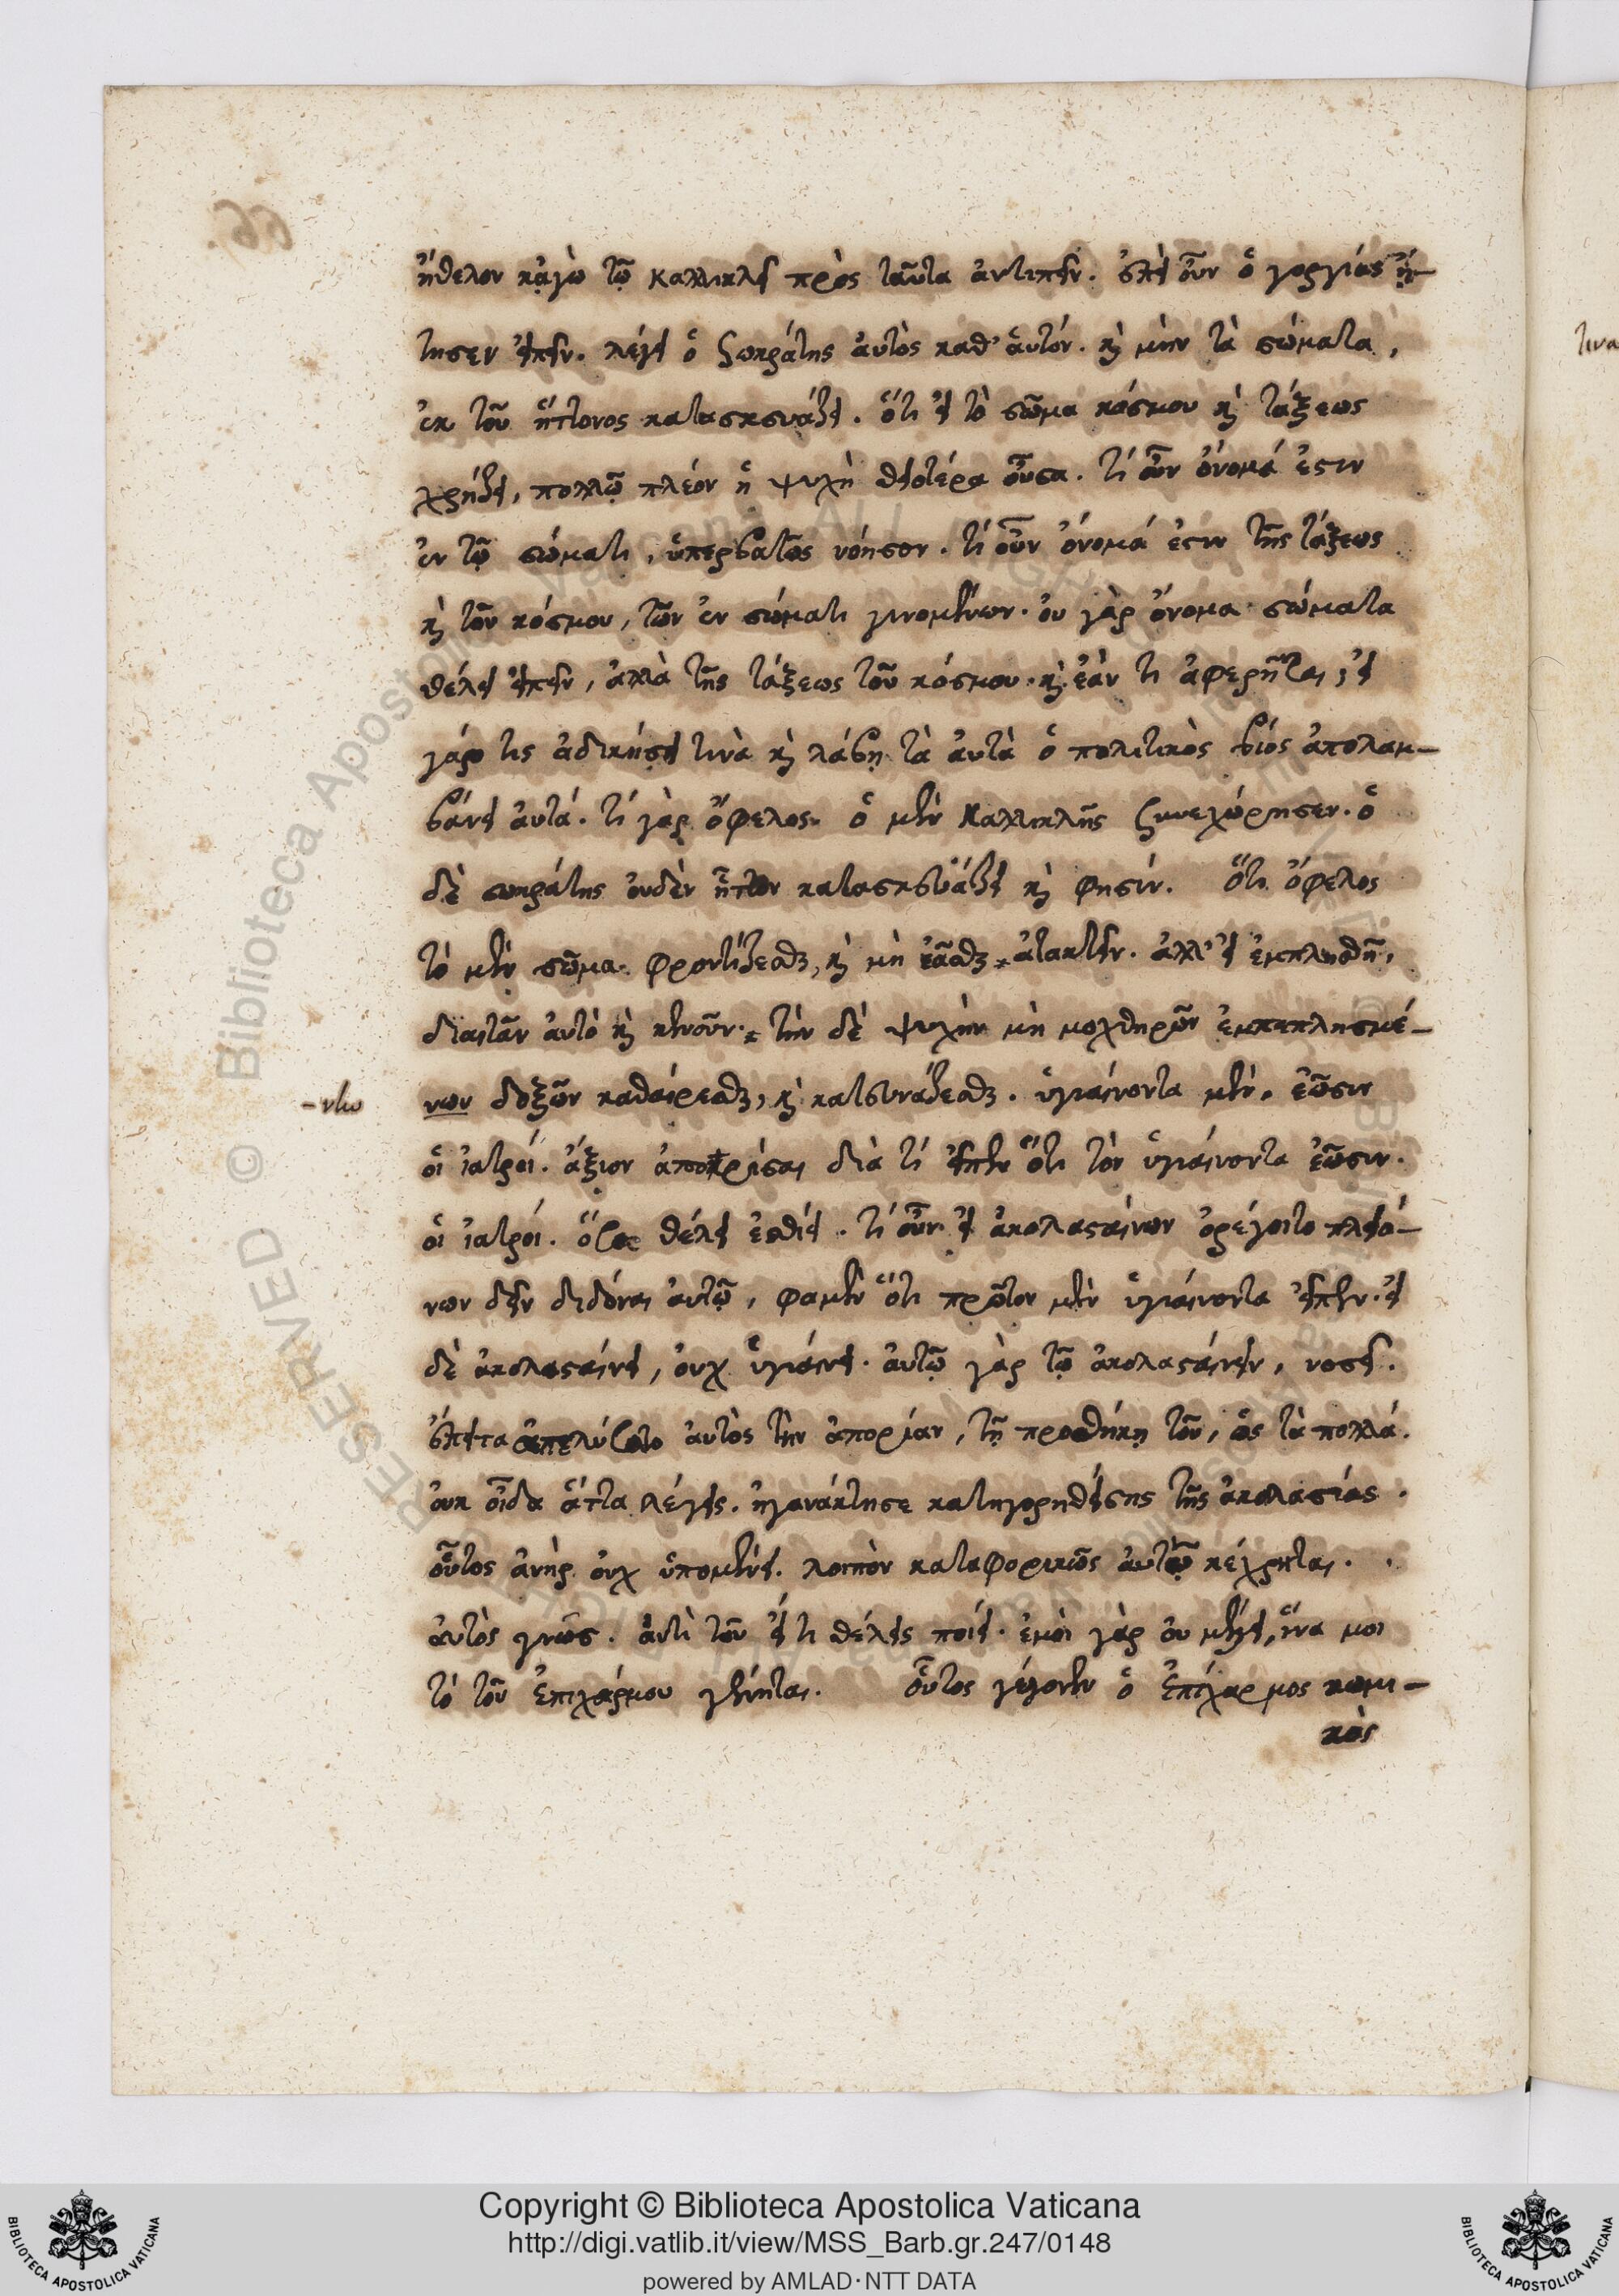 ἤθελον κᾀγὼ τῷ Καλλικλεῖ πρὸς ταῦτα ἀντιπεῖν. ἐπεὶ οὖν ὁ γοργίας ἤ-
τησεν εἰπεῖν. λέγει ὁ Σωκράτης αὐτὸς καθ' ἑαυτόν. καὶ μὴν τὰ σώματα,
ἐκ τοῦ ἥττονος κατασκευάζει. ὅτι εἰ τὸ σῶμα κόσμου καὶ τάξεως
χρήζει, πολλῷ πλέον ἡ ψυχὴ θειοτέρα οὖσα. τί οὖν ὄνομά ἐστιν
ἐν τῷ σώματι, ὑπερβατῶς νόησον. τί οὖν ὄνομά ἐστιν τῆς τάξεως
καὶ τοῦ κόσμου, τῶν ἐν σώματι γινομένων. οὐ γὰρ ὄνομα σώματα
θέλει εἰπεῖν, ἀλλὰ τῆς τάξεως τοῦ κόσμου. καὶ ἐάν τι ἀφερῆται, εἰ
γάρ τις ἀδικήσει τινὰ καὶ λάβῃ τὰ αὐτὰ ὁ πολιτικὸς βίος ἀπολαμ-
βάνει αὐτά. τί γὰρ ὄφελος. ὁ μὲν Καλλικλῆς ξυνεχώρησεν. ὁ
δὲ σωκράτης οὐδὲν ἧττον κατασκευάζει καὶ φησίν. ὅτι ὄφελος
τὸ μὲν σῶμα φροντίζεσθαι, καὶ μὴ ἐᾶσθαι ἀτακτεῖν. ἀλλ' εἰ ἐμπλησθῇ,
διαιτᾶν αὐτὸ καὶ κενοῦν. τὴν δὲ ψυχὴν μὴ μοχθηρῶν ἐμπεπλησμέ-
-νην
νων δοξῶν καθαίρεσθαι, καὶ κατευνάζεσθαι. ὑγιαίνοντα μὲν, ἐῶσιν
οἱ ἰατροί. ἄξιον ἀποκρίσαι διὰ τί εἶπεν ὅτι τὸν ὑγιαίνοντα ἐῶσιν.
οἱ ἰατροί. ὅσα θέλει ἐσθίει. τί οὖν εἰ ἀκολασταίνων ὀρέγοιτο πλειό-
νων δεῖν διδόναι αὐτῷ, φαμὲν ὅτι πρῶτον μὲν ὑγιαίνοντα εἶπεν. εἰ
δὲ ἀκολασταίνει, οὐχ ὑγιαίνει. αὐτῷ γὰρ τῷ ἀκολασταίνειν, νοσεῖ.
ἔπειτα ἀπελύσατο αὐτὸς τὴν ἀπορίαν, τῇ προσθήκῃ τοῦ, ὡς τὰ πολλά.
οὐκ οἶδα ἅττα λέγεις. ἠγανάκτησε κατηγορηθείσης τῆς ἀκολασίας.
οὗτος ἀνὴρ οὐχ ὑπομένει. λοιπὸν καταφορικῶς αὐτῷ κέχρηται.
αὐτὸς γνώσει. ἀντὶ τοῦ εἴ τι θέλεις ποίει. ἐμοὶ γὰρ οὐ μέλει, ἵνα μοι
τὸ τοῦ ἐπιχάρμου γένηται. οὗτος γέγονεν ὁ ἐπίχαρμος κωμι-
κὸς